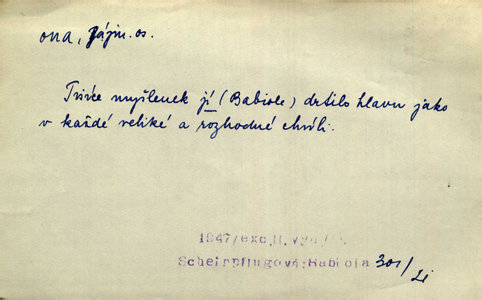 ona, zájm. os.
Tisíce myšlenek jí (Babiole) drtilo hlavu jako
v každé veliké a rozhodné chvíli.
1947/exc.II.vyd/
Scheinpflugová:Babiola 301/
Li